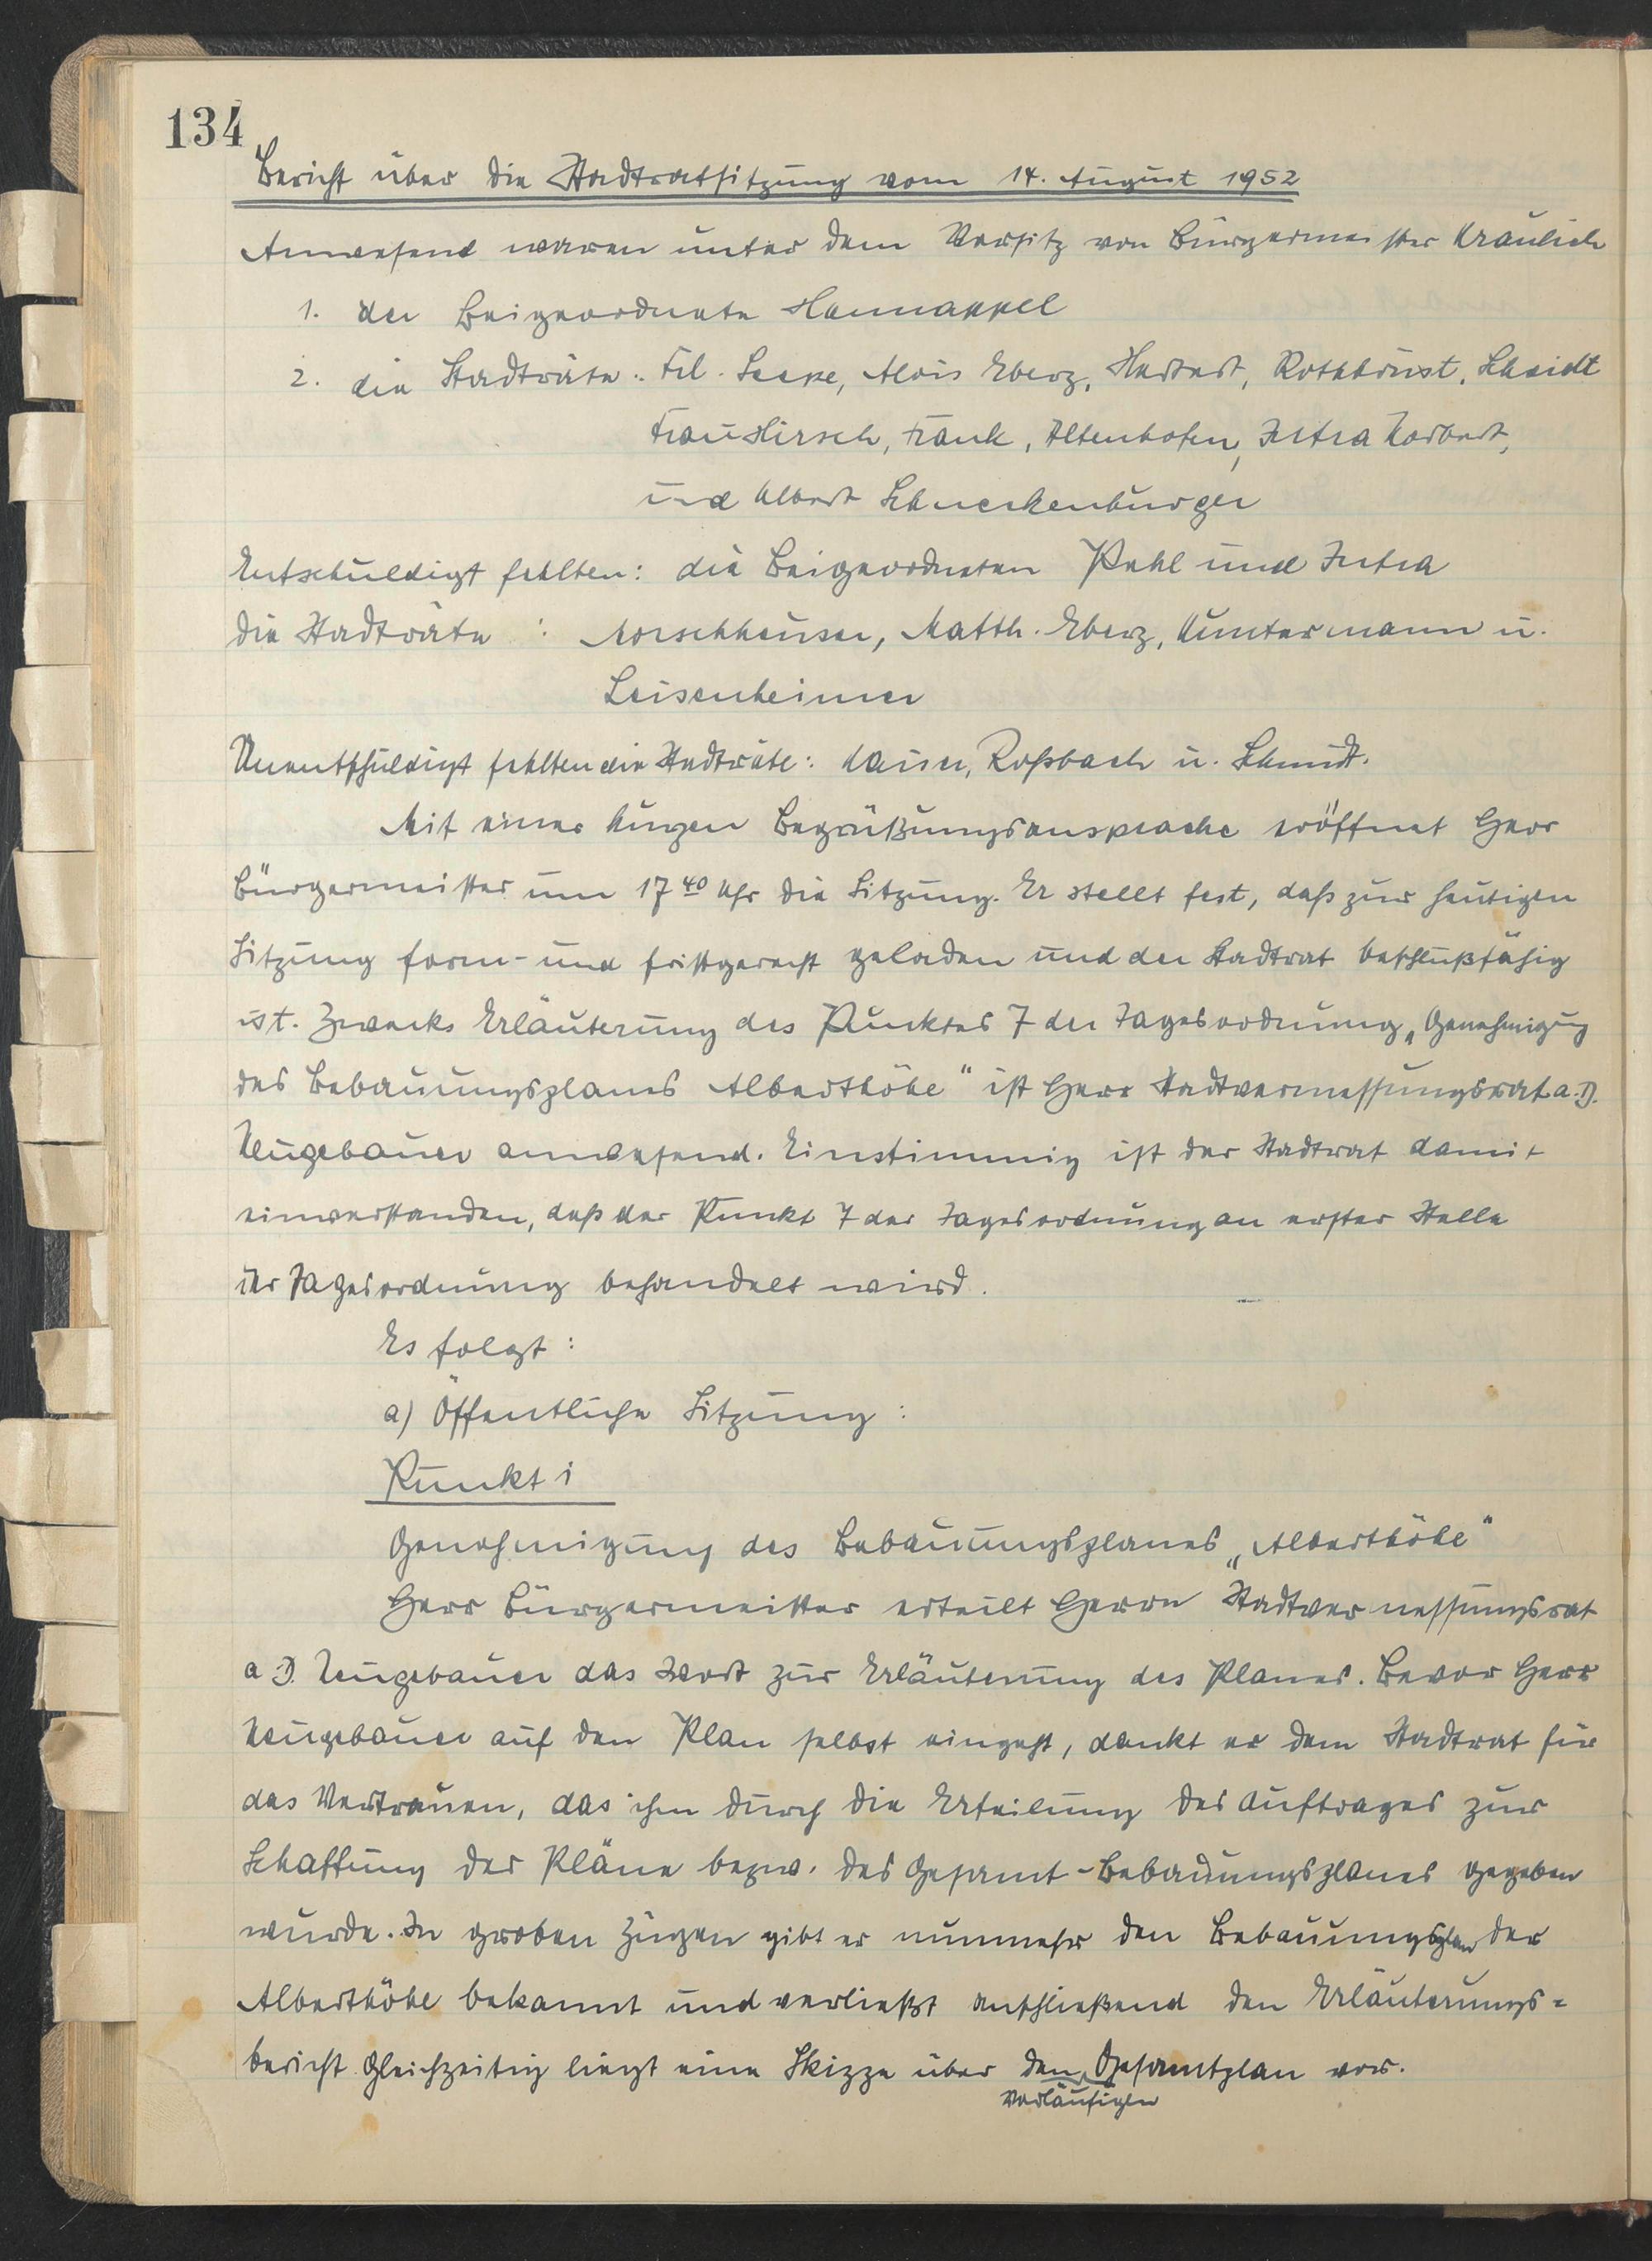 134
Bericht über die Stadtratsitzung vom 14. August 1952
Anwesend waren unter dem Vorsitz von Bürgermeister Kraulich
1. der Beigeordnete Hannappel
2. die Stadträte: Frl. Alois Eberz, Herbert, Rothbrust, Scheidt
Frau Hirsch, Frank, Altenhofen, Norbert,
und Albert Schneckenburger
Entschuldigt fehlten: die Beigeordneten Pehl und
die Stadträte: Morschhäuser, Matth. Eberz, Kuntermann u.
Leisenheimer
Unentschuldigt fehlten die Stadträte: Kaiser, Roßbach u. Schmidt.
Mit einer kurzen Begrüßungsansprache eröffnet Herr
Bürgermeister um 17 40 Uhr die Sitzung. Er stellt fest, daß zur heutigen
Sitzung form- und fristgerecht geladen und der Stadtrat beschlußfähig
ist. Zwecks Erläuterung des Punktes 7 der Tagesordnung „Genehmigung
des Bebauungsplanes Alberthöhe" ist Herr Stadtvermessungsrat a.D.
Neugebauer anwesend. Einstimmig ist der Stadtrat damit
einverstanden, daß der Punkt 7 der Tagesordnung an erster Stelle
der Tagesordnung behandelt wird.
Es folgt:
a) Öffentliche Sitzung:
Punkt 1
Genehmigung des Bebauungsplanes „Alberthöhe"
Herr Bürgermeister erteilt Herrn Stadtvermessungsrat
a.D. Neugebauer das Wort zur Erläuterung des Planes. Bevor Herr
Neugebauer auf den Plan selbst eingeht, dankt er dem Stadtrat für
das Vertrauen, das ihm durch die Erteilung des Auftrages zur
Schaffung der Pläne bezw. des Gesamt-Bebauungsplanes gegeben
wurde. In groben Zügen gibt er nunmehr den Bebauungsplan der
Alberthöhe bekannt und verließt anschließend den Erläuterungs=
bericht. Gleichzeitig liegt eine Skizze über den Gesamtplan vor.
vorläufigen